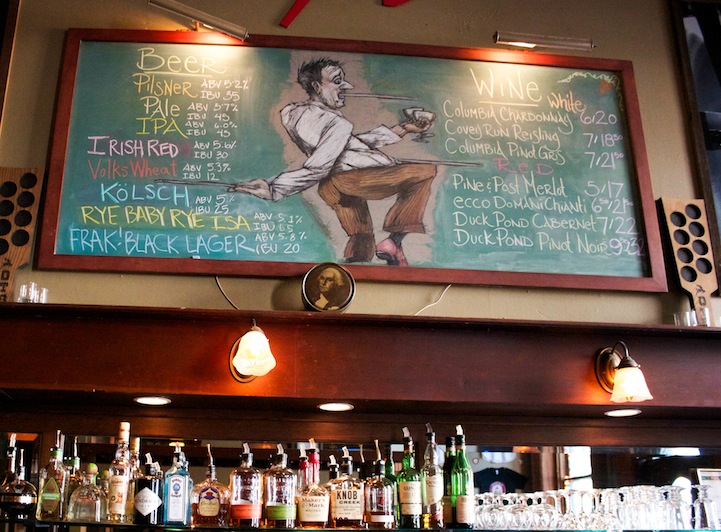 Beer
Pilsner ABV 5.2% IBU 35
Pale ABV 5.7% IBU 45
IPA ABV 6.0% IBU 45
IRISH RED ABV 5.6% IBU 30
Volks Wheat ABV 5.3% IBU 12
KÖLSCH ABV 5% IBU 25
RYE BABY RYE ISA ABV 5.1% IBU 65
FRAK! BLACK LAGER ABV 5.8% IBU 20
WINE
White
Columbia Chardonnay 6/20
Covey Run Reisling 7/18
Columbia Pinot Gris 7/21
RED
Pine & Post Merlot 5/17
ecco Domani Chianti
Duck Pond Cabernet 7/22
Duck Pond Pinot Noir
Maker's Mark
KNOB CREEK